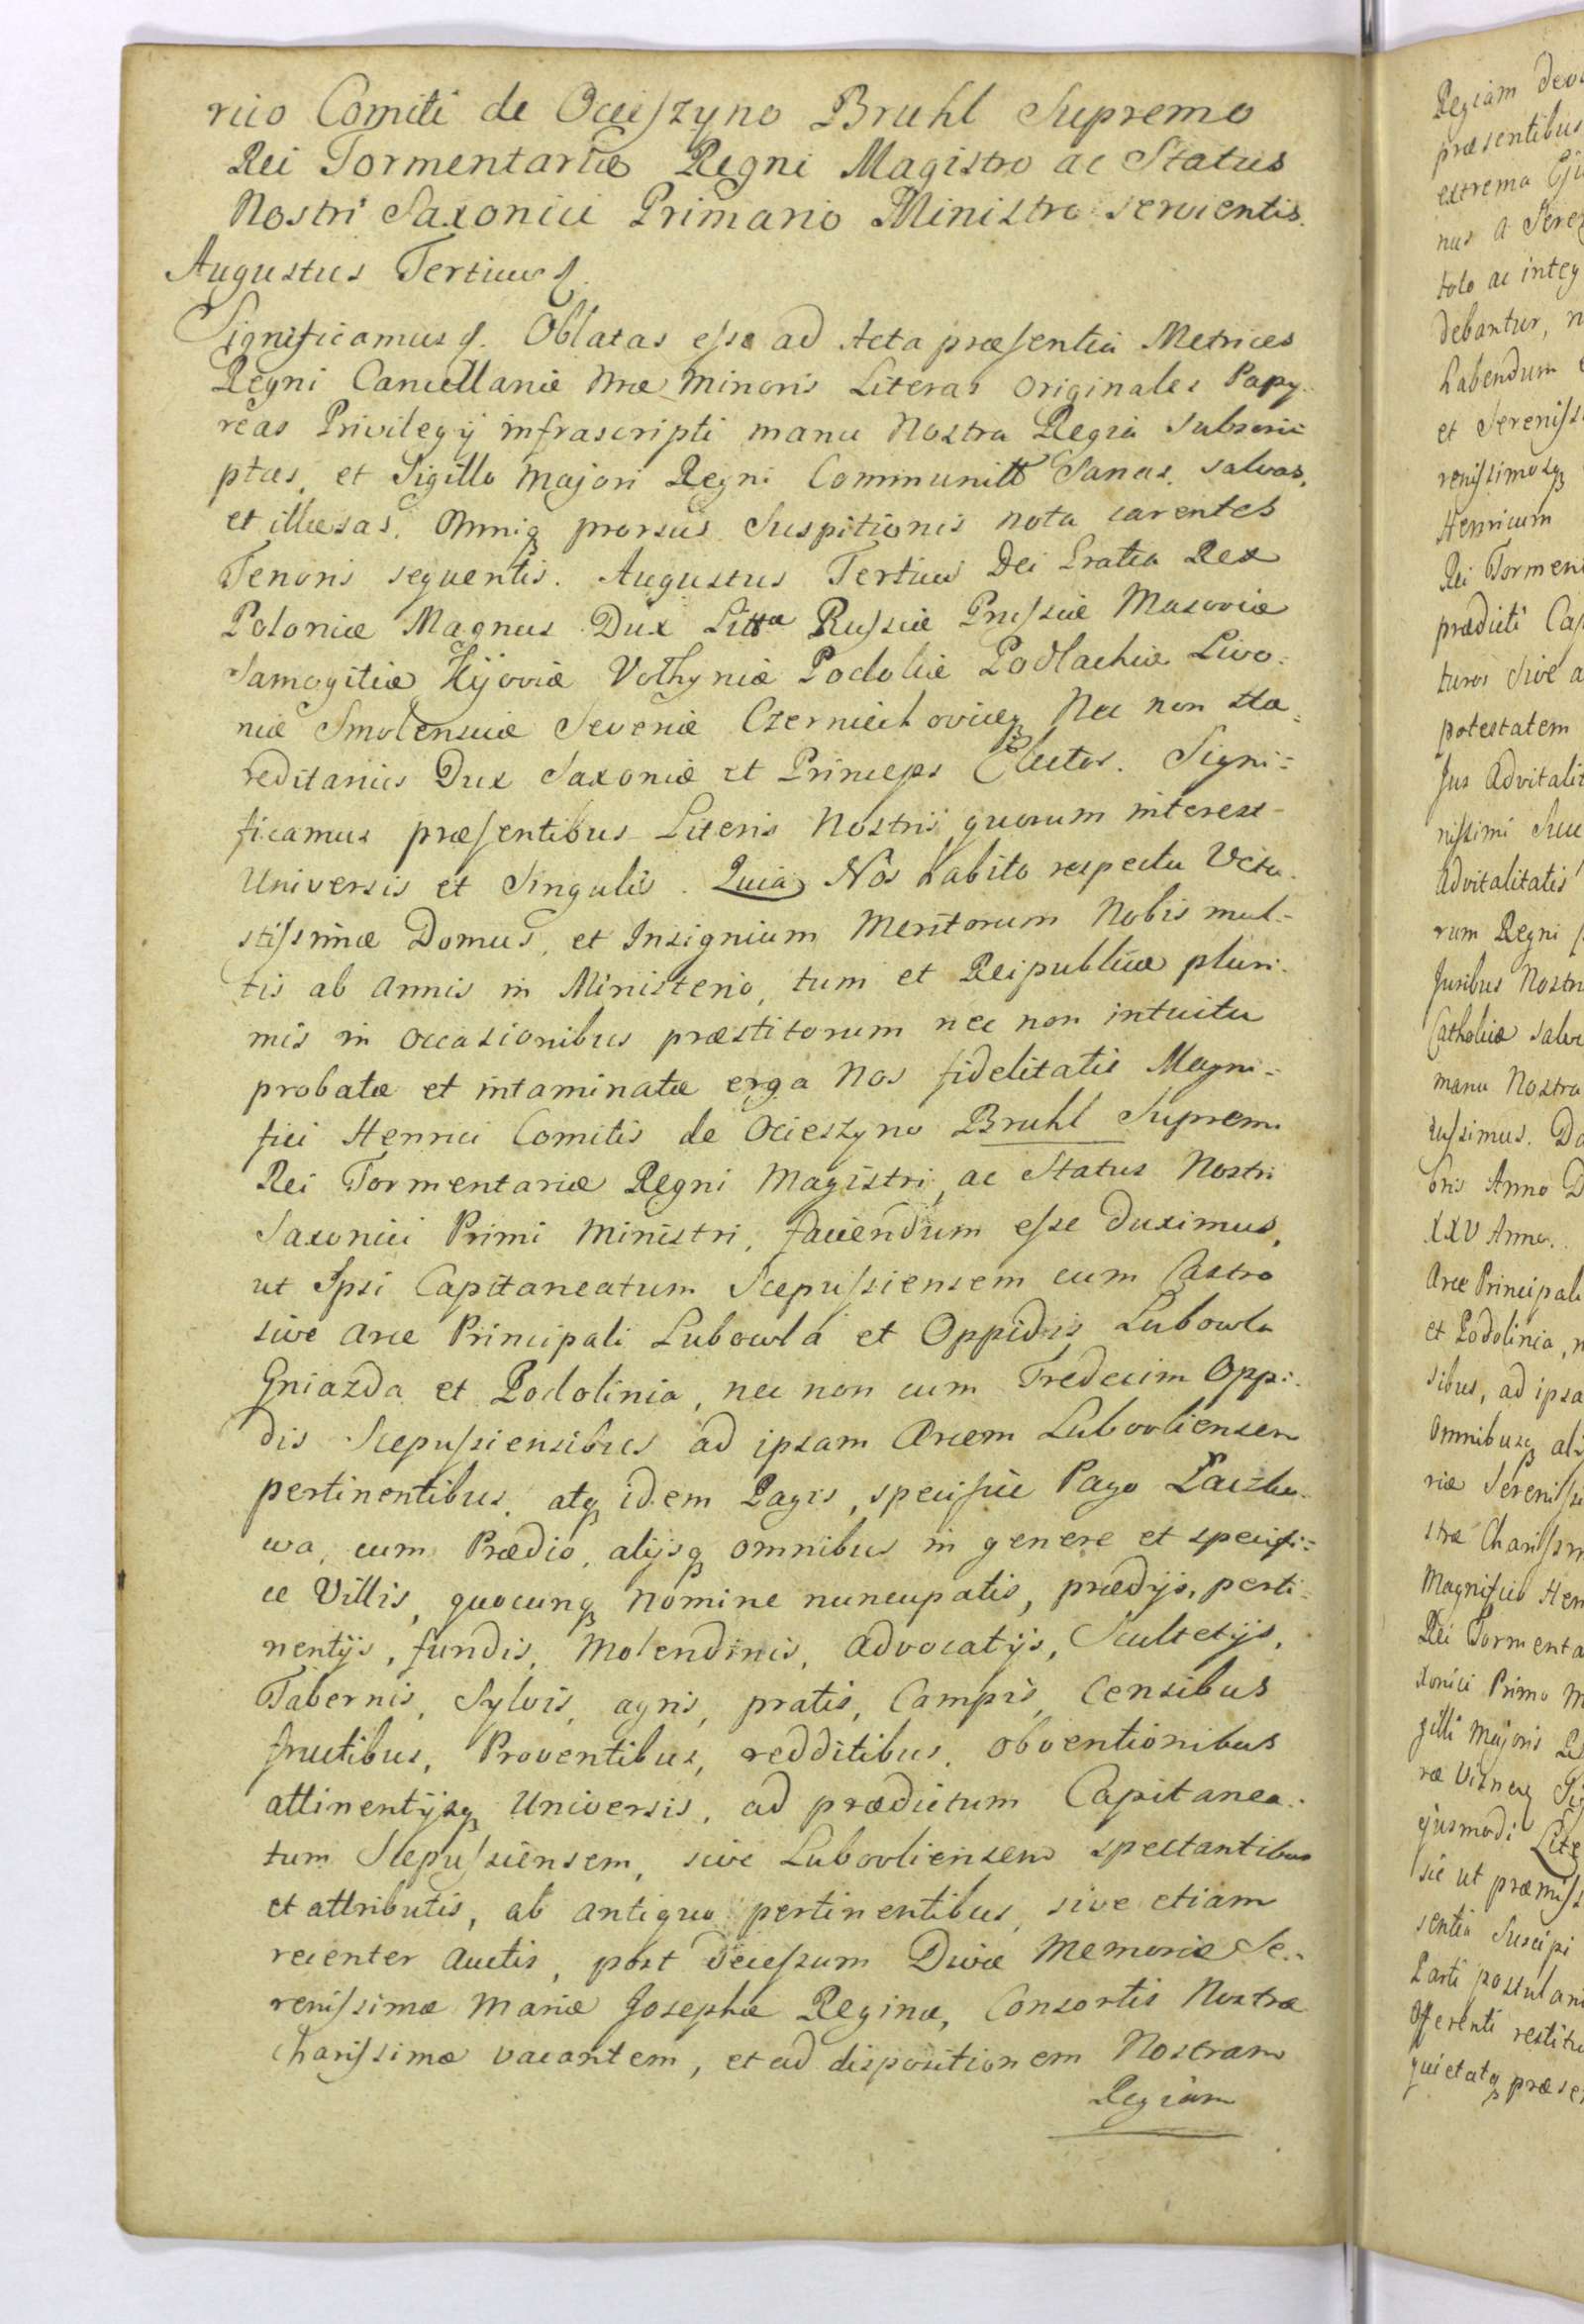 rico Comiti de Ocieszyno Bruhl Supremo
Rei Tormentariæ Regni Magistro ac Status
Nostri Saxonici Primario Ministro servientis.
Augustus Tertius
Significamus Oblatas esse ad Acta præsentia Metrices
Regni Cancellariæ Nræ Minoris Literas Originales Papy-
reas Privilegij infrascripti manu Nostra Regia Subscri=
ptas, et Sigillo Majori Regni Communitt Sanas, salvas,
et illæsas, Omniq prorsus Suspitionis nota carentes
Tenoris sequentis. Augustus Tertius Dei Gratia Rex
Poloniæ Magnus Dux Littæ Russiæ Prussiæ Masoviæ
Samogitiæ Kijoviæ Volhyniæ Podoliæ Podlachiæ Livo:
niæ Smolensciæ Severiæ Czerniechoviæq Nec non Hæ=
reditarius Dux Saxoniæ et Princeps Elector. Signi=
ficamus præsentibus Literis Nostris quorum interest
Universis et Singulis. Quia Nos habito respectu Vetu-
stissimæ Domus, et Insignium Meritorum Nobis mul-
tis ab Annis in Ministerio, tum et Reipublicæ pluri-
mis in occasionibus præstitorum nec non intuitu
probatæ et intaminatæ erga Nos fidelitatis Magni=
fici Henrici Comitis de Ocieszyno Bruhl Supremi
Rei Tormentariæ Regni Magistri, ac Status Nostri
Saxonici Primi Ministri, faciendum esse duximus,
ut Ipsi Capitaneatum Scepussiensem cum Castro
sive Arce Principali Lubowla et Oppidis Lubowla
Gniazda et Podolinia, nec non cum Tredecim Oppi:
dis Scepussiensibus ad ipsam Arcem Lubovliensem
pertinentibus, atq idem Pagis, specifice Pago
wa, cum Prædio, alijsq omnibus in genere et specifi=
ce Villis, quocunq Nomine nuncupatis, prædijs, perti-
nentijs, fundis, Molendinis, Advocatijs, Scultetijs,
Tabernis, Sylvis, agris, pratis, Campis, Censibus
fructibus, Proventibus, redditibus, obventionibus
attinentijsq Universis, ad prædictum Capitanea:
tum Scepussiensem, sive Lubovliensem spectantibus
et attributis, ab antiquo pertinentibus, sive etiam
recenter Auctis, post decessum Divæ Memoriæ Se:
renissimæ Mariæ Josephæ Reginæ, Consortis Nostræ
Charissimæ vacantem, et ad dispositionem Nostram
Regiam
Regiam
præsentibus
extrema
nus a
toto ac
debantur,
habendum
et
renissimosq
Henricum
Rei
prædicti
turos sive
potestatem
Jus
nissimi
Advitalitatis
rum Regni
Juribus
Catholicæ
manu Nostra
Anno
XXV Anno.
Arce
et Podolinia,
sibus, ad ipsa
Omnibusq
riæ
stræ
Magnifico
Rei
xonici Primo
gilli Majoris
ejusmodi
sic ut
sentia Suscipi
Parti
Offerenti
quietatq